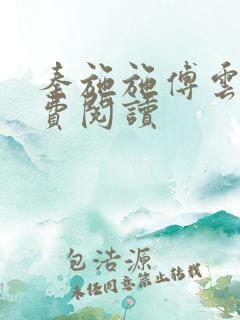 秦施施傅雲
費閱讀
包浩源
未經同意禁止轉載